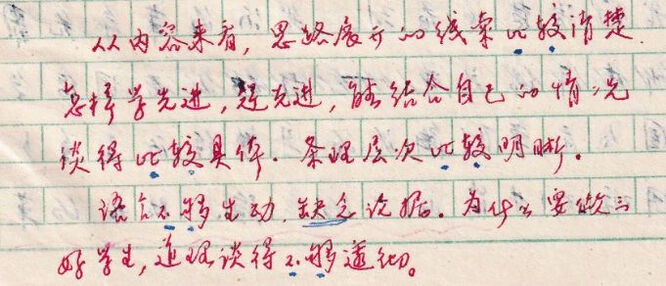 从内容来看，思路展开的线索比较清楚.
怎样学先进，赶先进，能结合自己的情况
谈得比较具体. 条理层次比较明晰.
语言不够生动. 缺乏论据. 为什么要做三
好学生，道理谈得不够透彻。